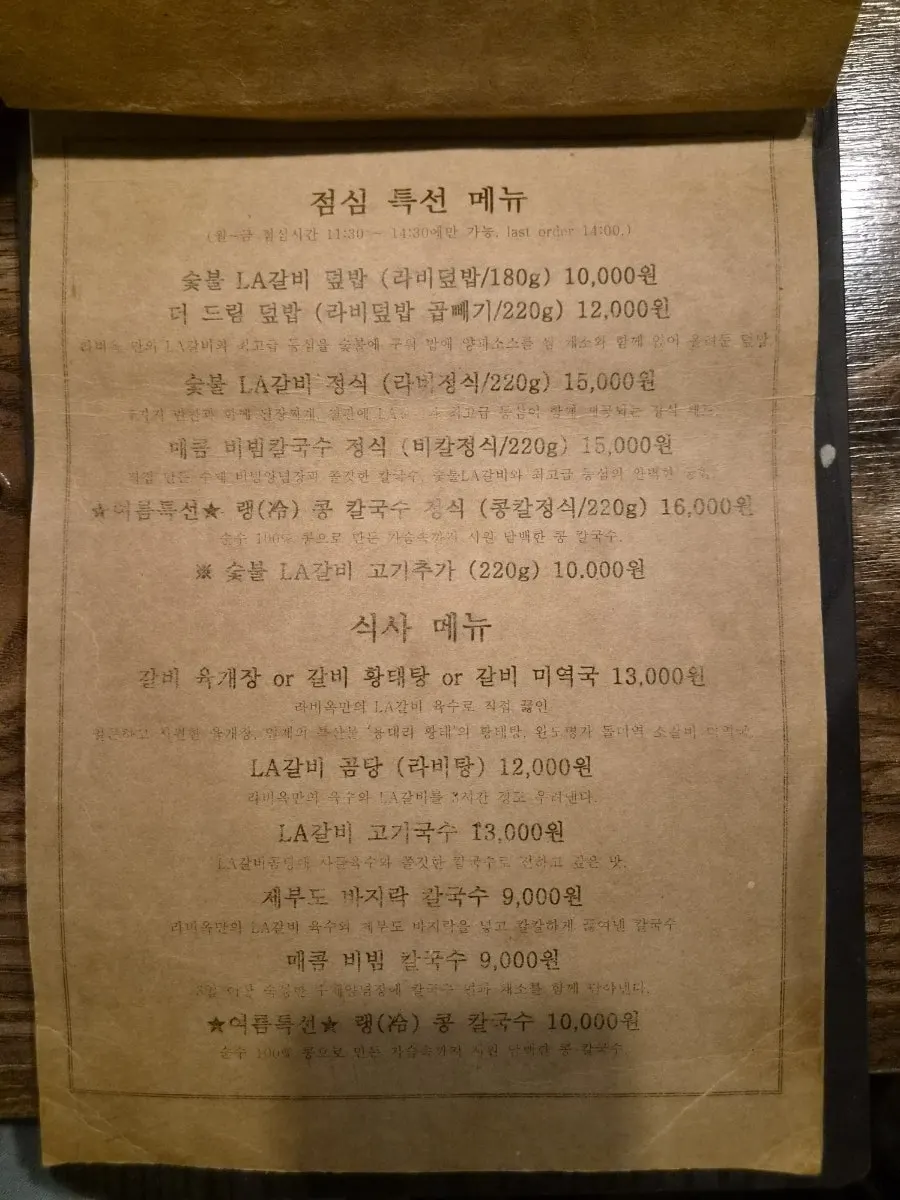 점심 특선 메뉴
(월~금 점심시간 11:30 ~ 14:30에만 가능, last order 14:00.)
숯불 LA갈비 덮밥 (라비덮밥/180g) 10,000원
더 드림 덮밥 (라비덮밥 곱빼기/220g) 12,000원
라비옥 만의 LA갈비와 최고급 등심을 숯불에 구워 밥에 양파소스를 채소와 함께 얹어 덮밥
숯불 LA갈비 정식 (라비정식/220g) 15,000원
반찬과 함께 최고급 등심이 함께 제공되는
매콤 비빔칼국수 정식 (비칼정식/220g) 15,000원
직접 만든 수제 비빔양념장과 쫄깃한 칼국수, 숯불LA갈비와 최고급 등심의 완벽한
★여름특선★ 랭(冷) 콩 칼국수 정식 (콩칼정식/220g) 16,000원
순수 100% 콩으로 만든 가슴속까지 시원 담백한 콩 칼국수.
※ 숯불 LA갈비 고기추가 (220g) 10.000원
식사 메뉴
갈비 육개장 or 갈비 황태탕 or 갈비 미역국 13,000원
라비옥만의 LA갈비 육수로 직접 끓인
육개장, 특산물 '용대리 황태'의 황태탕, 완도명가 돌미역 소갈비
LA갈비 곰탕 (라비탕) 12,000원
라비옥만의 육수와 LA갈비를 3시간 정도 우려낸다.
LA갈비 고기국수 13,000원
육수와 쫄깃한 칼국수로 진하고 깊은 맛.
제부도 바지락 칼국수 9,000원
라비옥만의 LA갈비 육수와 제부도 바지락을 넣고 칼칼하게 끓여낸 칼국수
매콤 비빔 칼국수 9,000원
칼국수 면과 채소를 함께 담아낸다.
★여름특선★ 랭(冷) 콩 칼국수 10,000원
순수 100% 콩으로 만든 가슴속까지 시원 담백한 콩 칼국수.